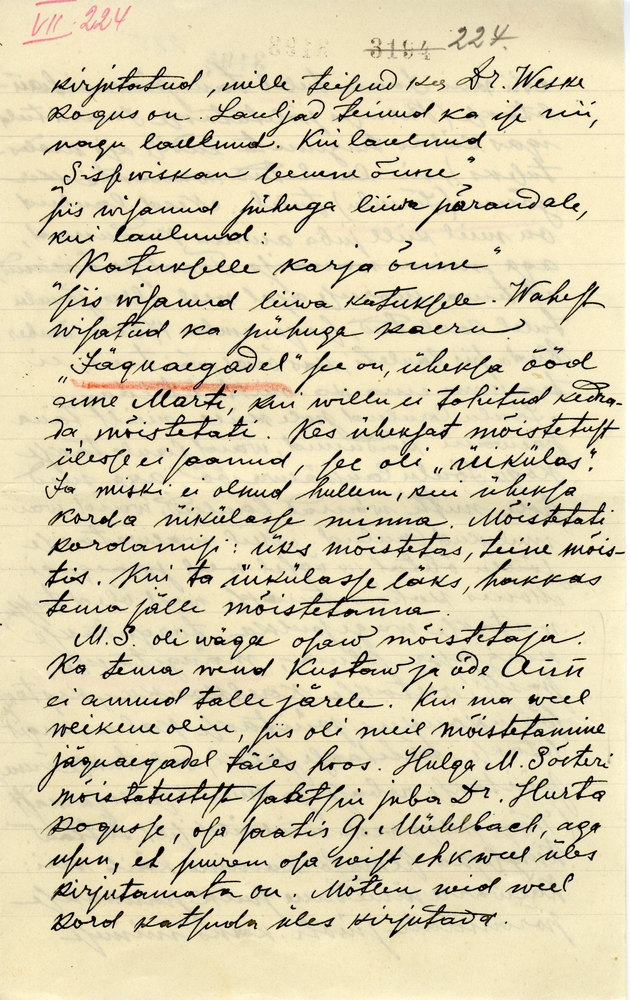 VII. 224
3194 224.
kirjutatud, mille teisend ka Dr. Weske
kogus on. Lauljad teinud ka ise nii,
nagu laulnud. Kui laulnud
"Sisse wiskan seeme õnne"
siis wisanud pihuga liiwa põrandale,
kui laulnud:
"Katukselle karja õnne"
siis wisanud liiwa katuksele. Wahest
wisatud ka pihuga kaeru.
"Jäguaegadel" see on, üheksa ööd
enne Marti, kui willu ei tohitud kedra-
da mõistetati. Kes üheksat mõistetust
ülesse ei saanud, see oli "üikülas".
Ja miski ei olnud hullem, kui üheksa
korda üikülasse minna. Mõistetati
kordamisi: üks mõistetas, teine mõis-
tis. Kui ta üikülasse läks, hakkas
tema jälle mõistetama.
M.S. oli wäga osaw mõistetaja.
Ka tema wend Kustaw ja õde Ann
ei annud talle järele. Kui ma weel
weikene olin, siis oli meil mõistetamine
jäguaegadel täies hoos. Hulga M. Sösteri
mõistatustest saatsin juba Dr. Hurta
kogusse, osa saatis G. Mühlbach, aga
usun, et suurem osa neist ehk weel üles
kirjutamata on. Mõtlen neid weel
kord katsuda üles kirjutada.